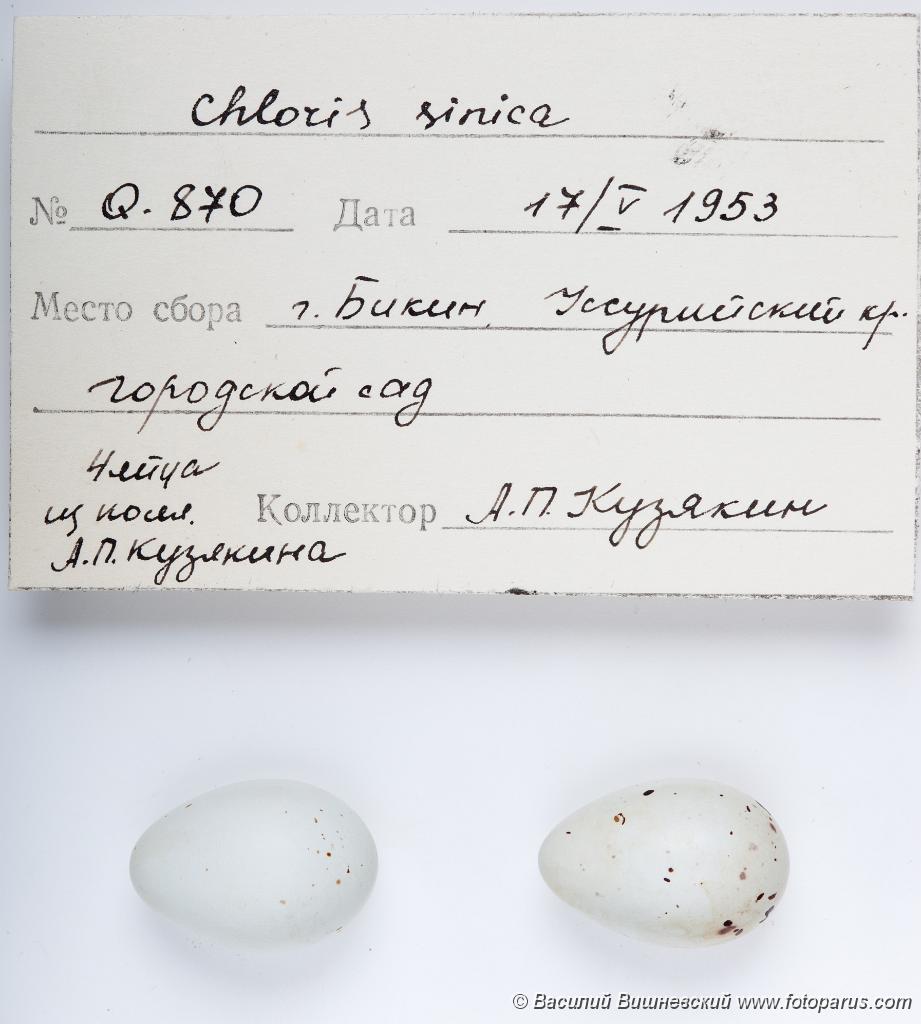 Chloris sinica
№ Q. 870 Дата 17/V 1953
Место сбора г. Бикин, Уссурийский кр.
городской сад
4 яйца
из колл. Коллектор А.П. Кузякин
А.П. Кузякина
© Василий Вишневский www.fotoparus.com